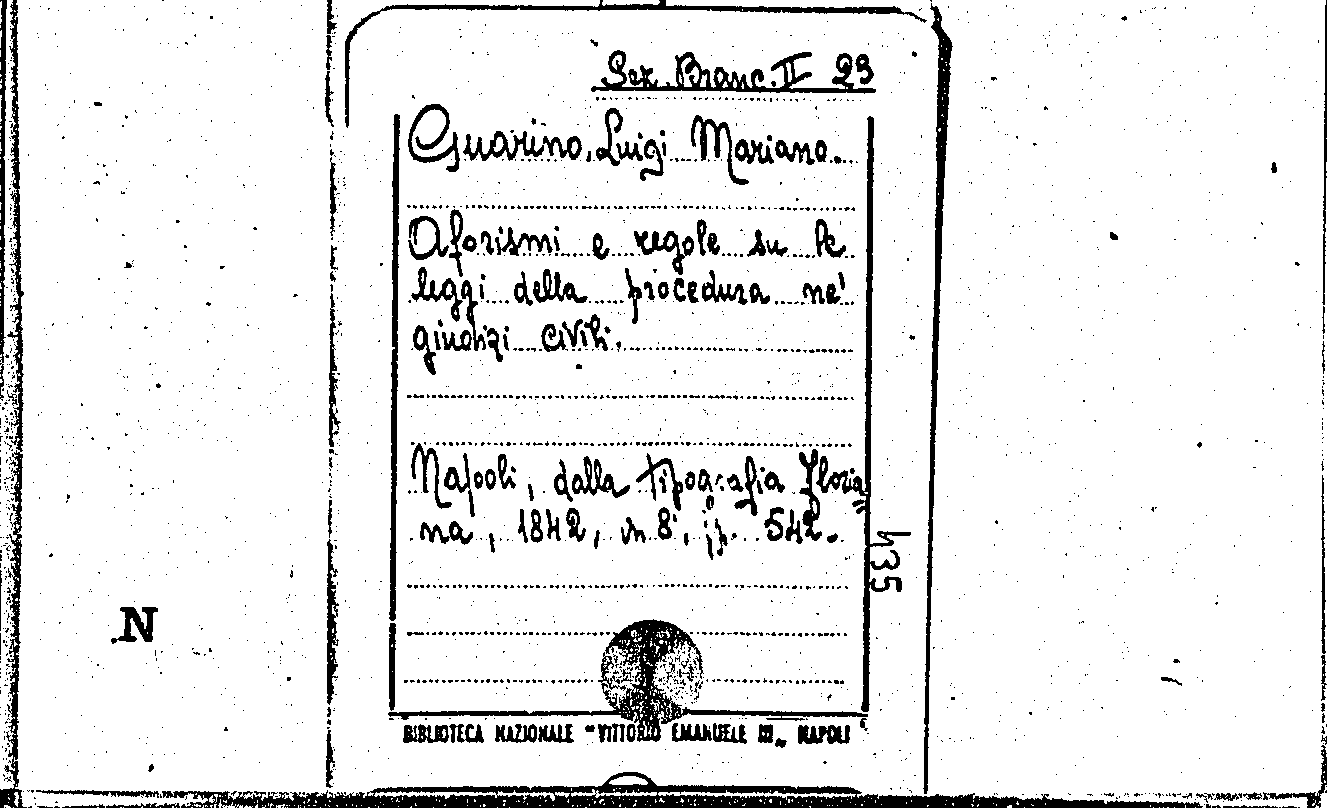 Sez. Branc. II 23
Guarino, Luigi Mariano.
Aforismi e regole su le
leggi della procedura ne'
giudizi civili.
Napoli, dalla tipografia Floria
na, 1842, in 8°, p. 542.
435
N
BIBLIOTECA NAZIONALE "VITTORIO EMANUELE III„ NAPOLI